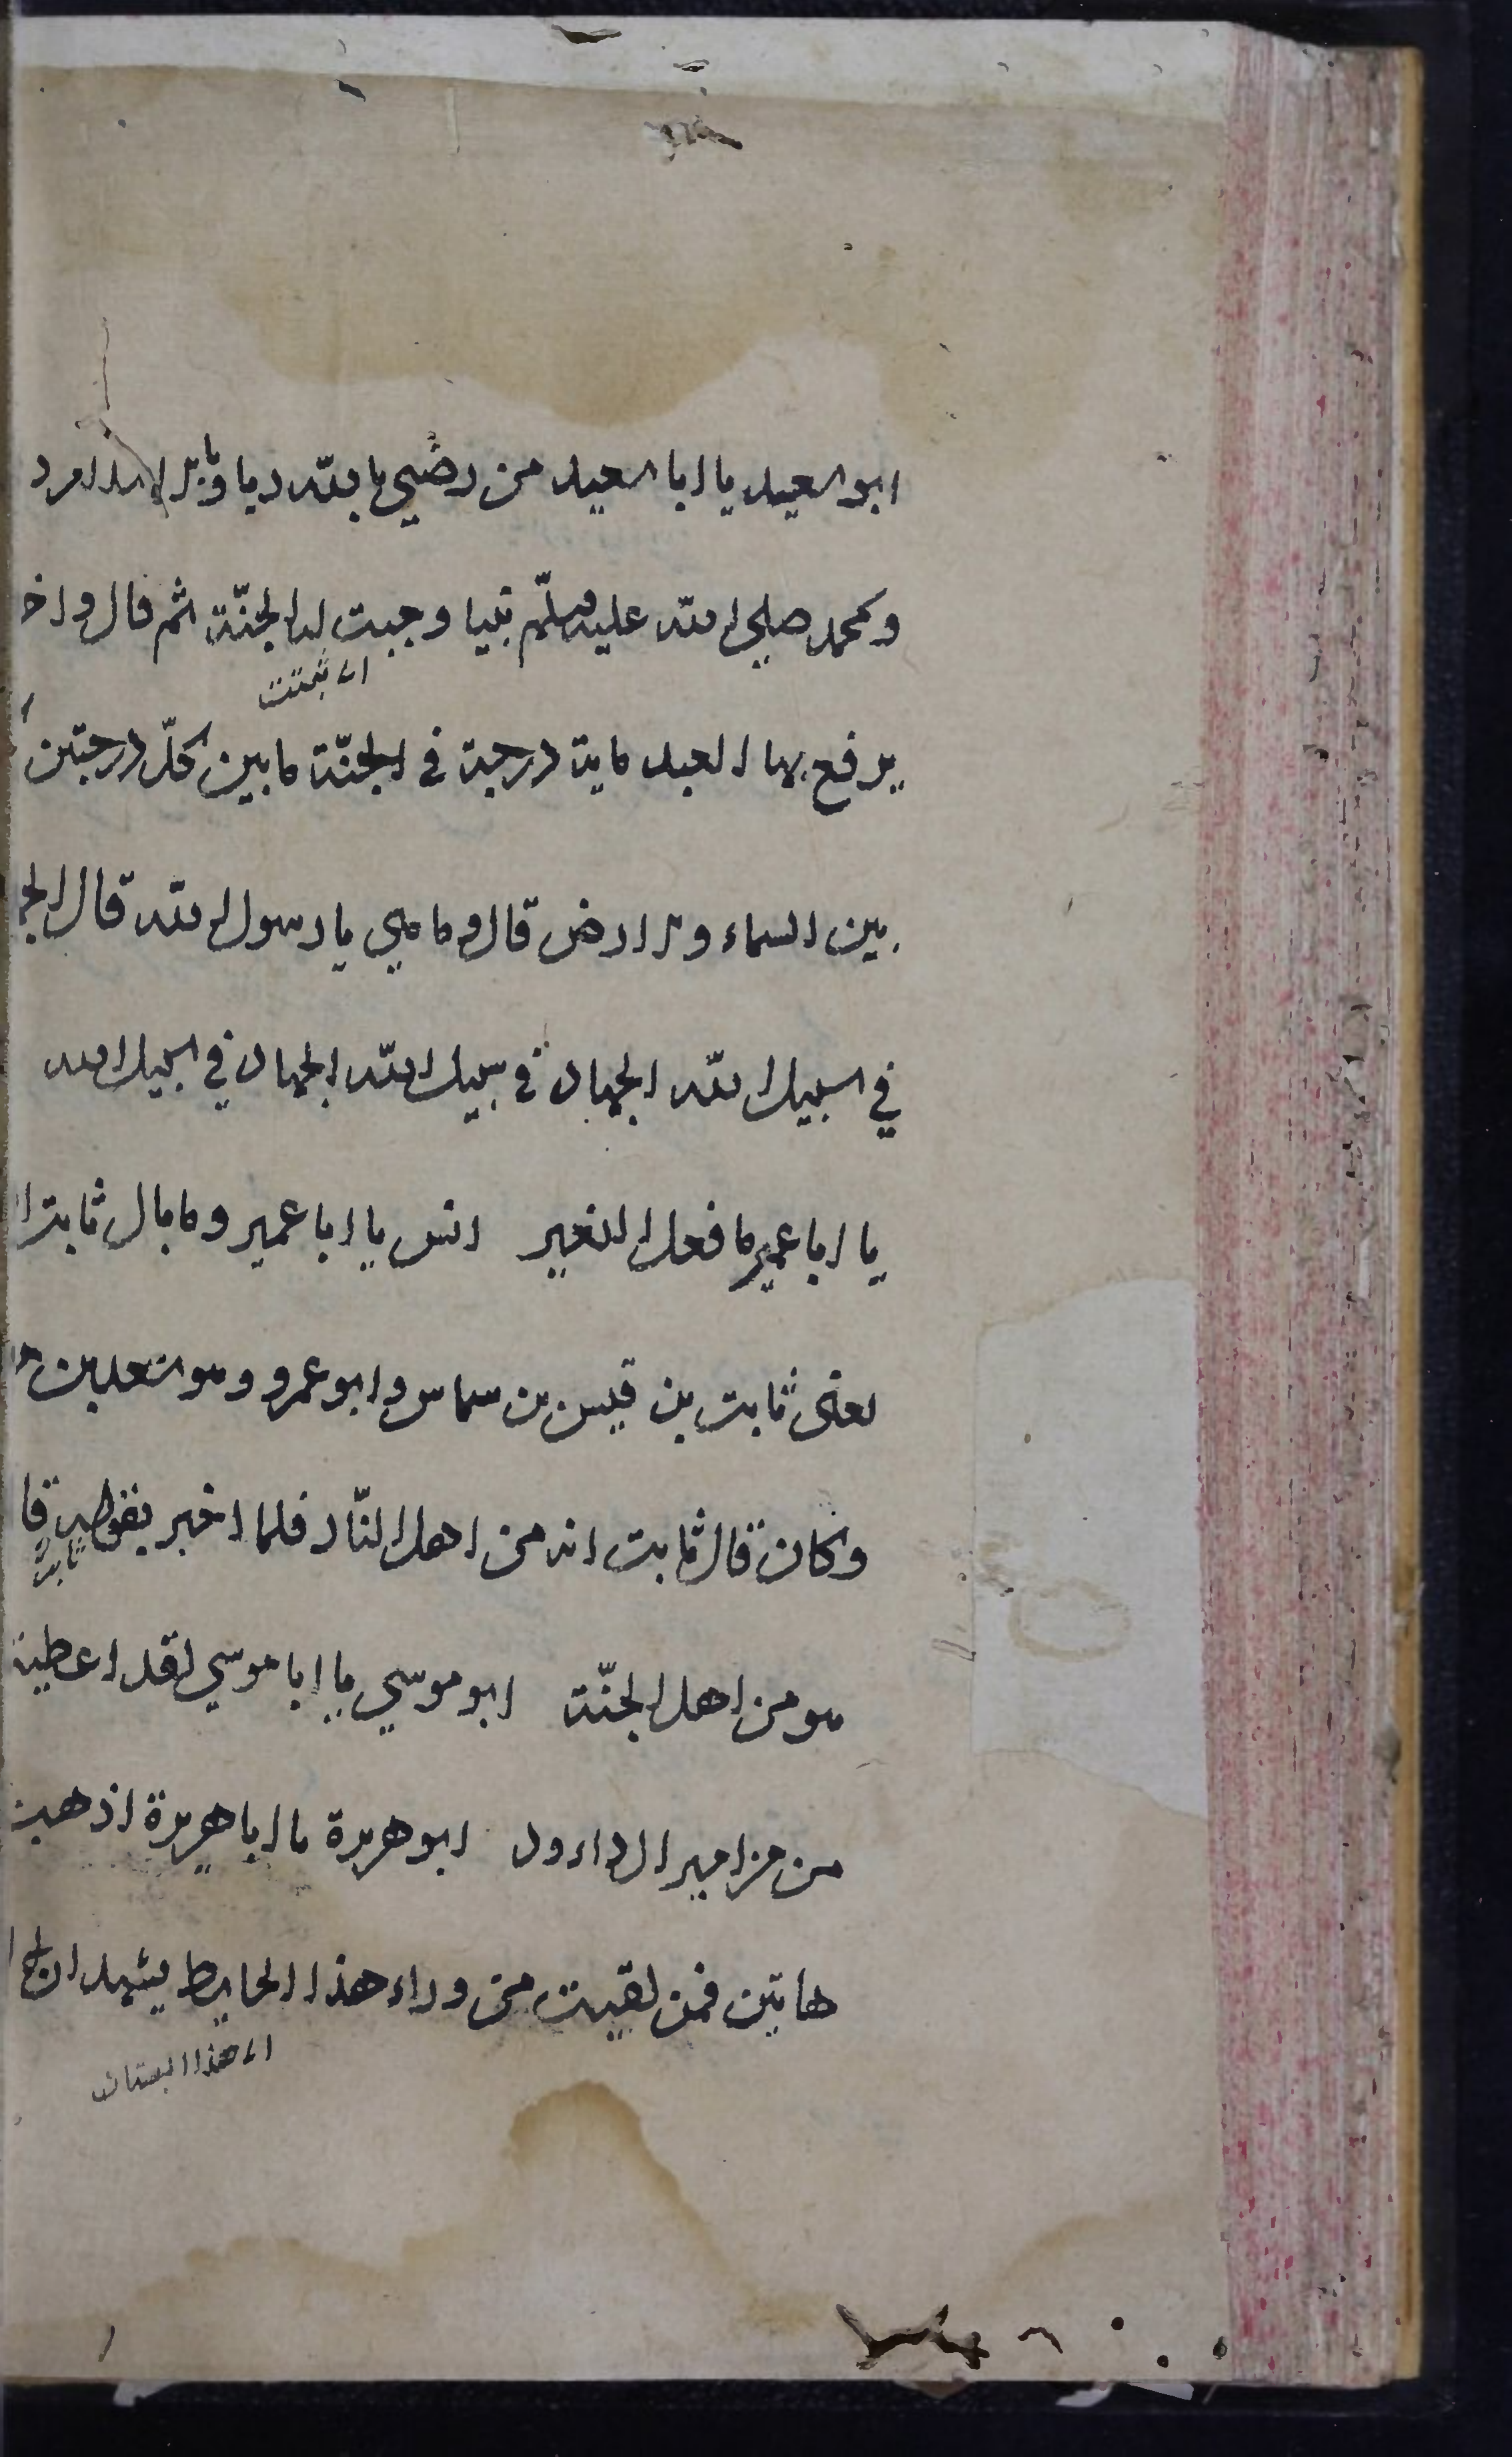 ابو العيد يا ابا العيد من رضي بالله ربا وبالاسلام د
وبمحمد صلي الله عليه وسلم نبيا وجبت له الجنّة ثم قال واخ
اى ثبتت
يرفع بها العبد ماية درجة في الجنّة ما بين كلّ درجتين
بين السماء والارض قال وما هي يا رسول الله قال الج
في اسبيل الله الجهاد في سبيل الله الجهاد في اسبيل الله
يا ابا عمير ما فعل النغير انس يا ابا عمير وما بال ثابت ا
يعني ثابت بن قيس بن سماس وابو عمرو وهو سعد بن
وكان قال ثابت انه من اهل النّار فلما اخبر بقوله قا
ثابت
هو من اهل الجنّة ابو موسي يا ابا موسي لقد اعطيت
من مزامير ال داود ابو هريرة يا ابا هريرة اذهب
هاتين فمن لقيت من وراء هذا الحايط يشهد ان
اى هذا البستان